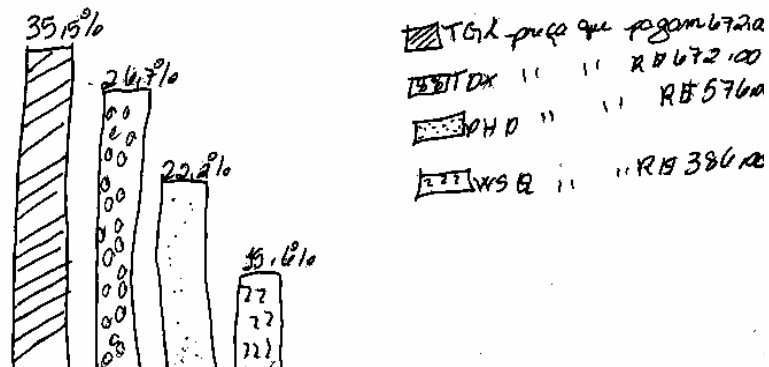 35,5%
26,7%
22,2%
15,6%
TGK preço que pagam 672,00
TDX " " R$ 672,00
PHD " " R$ 576,00
WSQ " " R$ 386,00